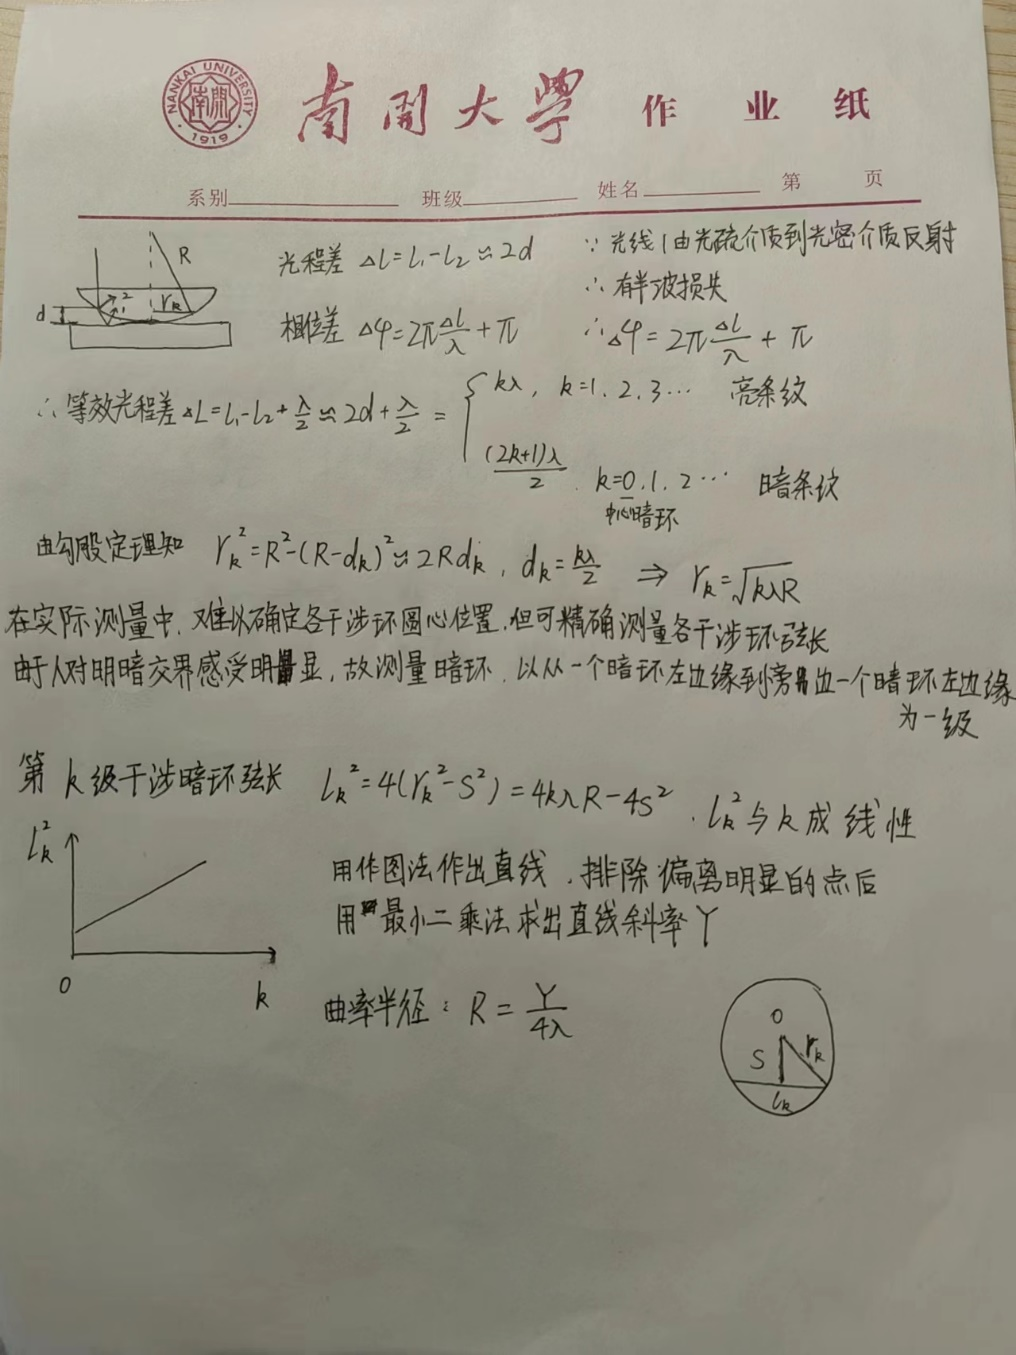 NANKAI UNIVERSITY
1919
南开大学 作业纸
系别 班级 姓名 第 页
R
d
1
2
r_k
光程差 Δl=l₁-l₂≈2d
∵光线1由光疏介质到光密介质反射
∴有半波损失
相位差 Δφ=2π Δl/λ + π
∴Δφ=2π Δl/λ + π
∴等效光程差ΔL=l₁-l₂+λ/2≈2d+λ/2= { kλ, k=1.2.3… 亮条纹
(2k+1)λ/2 . k=0.1.2… 暗条纹
中心暗环
由勾股定理知 r_k²=R²-(R-d_k)²≈2Rd_k, d_k=kλ/2 ⇒ r_k=√kλR
在实际测量中,难以确定各干涉环圆心位置,但可精确测量各干涉环弦长
由于人对明暗交界感受明显,故测量暗环,以从一个暗环左边缘到旁边一个暗环左边缘
为一级
第k级干涉暗环弦长 l_k²=4(r_k²-S²)=4kλR-4S². l_k²与k成线性
l_k²
0
k
用作图法作出直线,排除偏离明显的点后
用最小二乘法求出直线斜率Y
曲率半径: R=Y/4λ
O
S
r_k
l_k